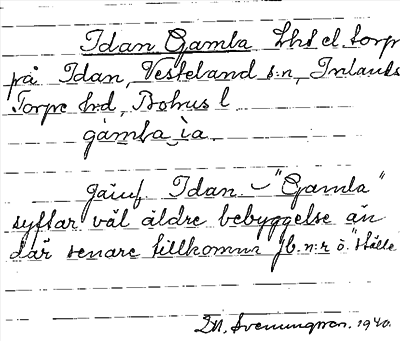 Idan Gamla Lht el. torp
på Idan, Vesteland s:n, Inlands
Torpe hd, Bohus l
gàmla ìa.
Jämf Idan – "Gamla"
syftar väl äldre bebyggelse än
där senare tillkomm jb. n:r o. ställe
M. Svenungsson. 1940.